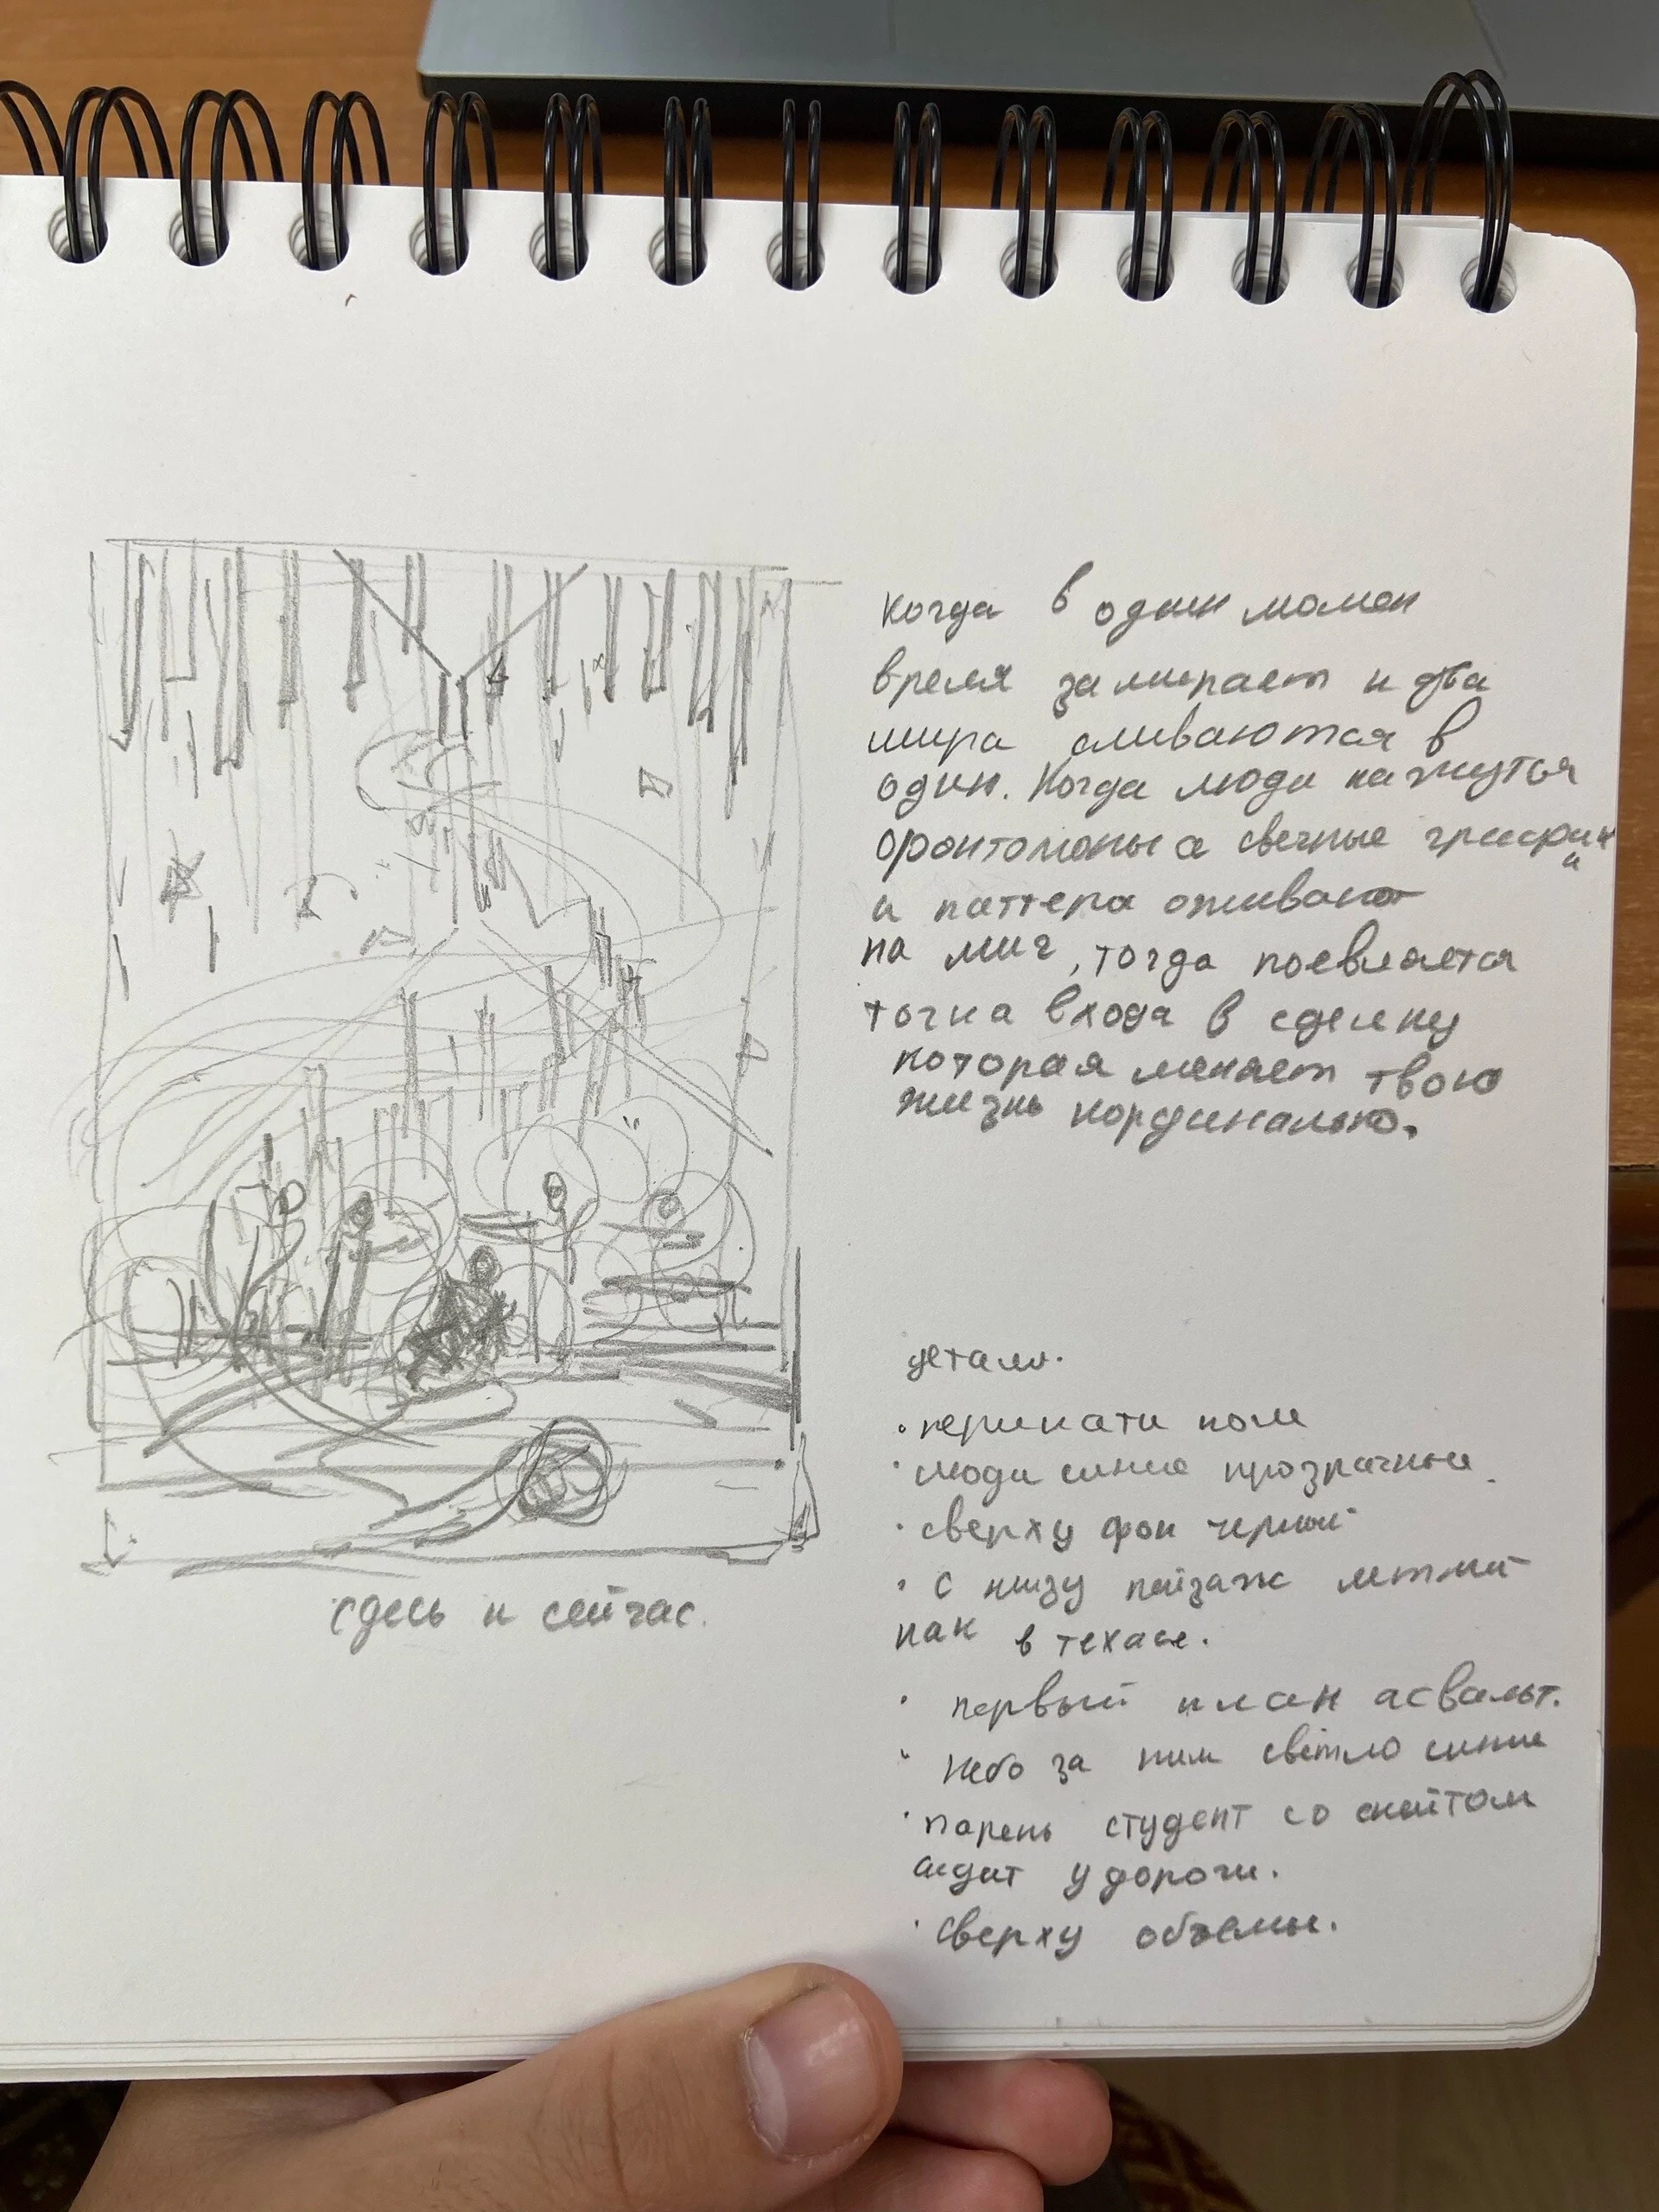 когда в один момен
время замирает и два
мира сливаются в
один. Когда люди кажутся
фонтомоны а свечные графики
и паттера оживают
на миг, тогда поевляется
точка входа в сделку
которая меняет твою
жизнь кординально.
детали.
• перикати поле
• люди синие прозрачные.
• сверху фон черный
• с низу пейзаж летний
как в техасе.
• первый план асвальт.
• небо за ним світло синие
• парень студент со скейтом
сидит у дороги.
• сверху объемы.
сдесь и сейчас.